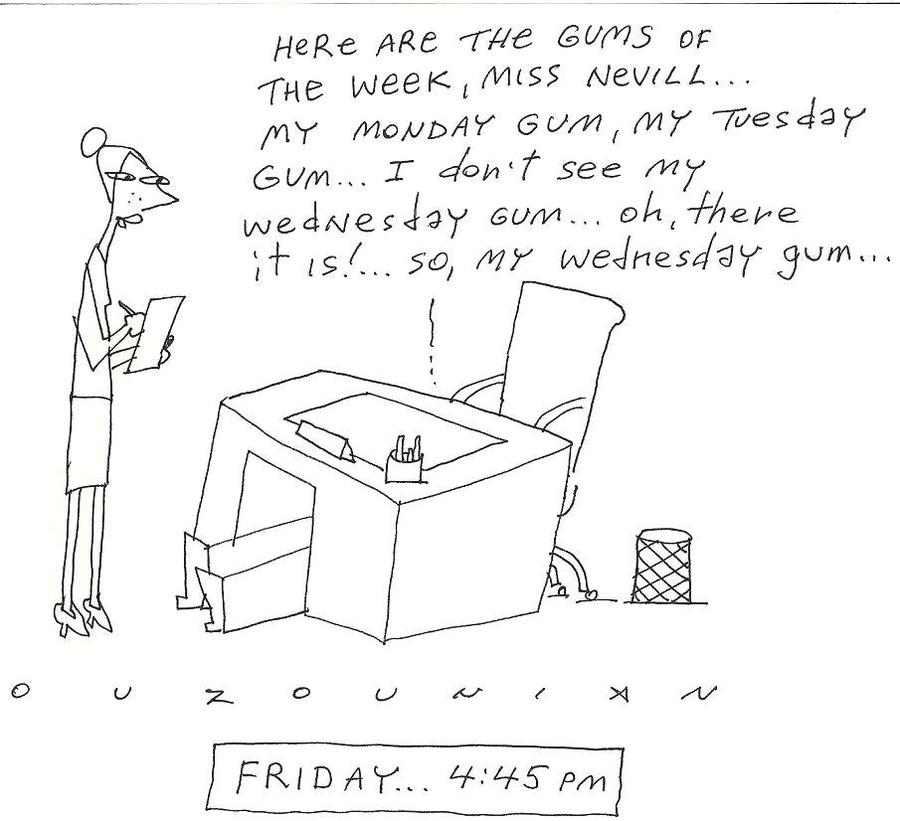 HeRe ARe THE GUMS OF
THE WEEK, MISS NEVILL...
MY MONDAY GUM, MY Tuesday
GUM... I don't see my
wedNesday GUM... oh, there
it is!... so, MY wednesday gum...
OUZOUNIAN
FRIDAY... 4:45 PM